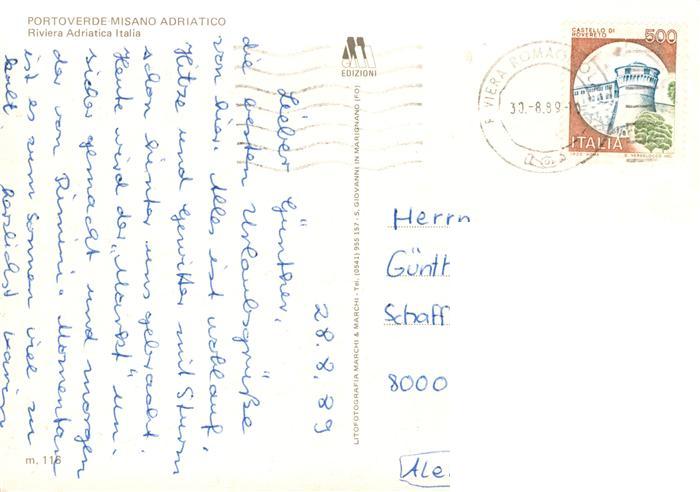 PORTOVERDE-MISANO ADRIATICO
Riviera Adriatica Italia
EDIZIONI
28.8.89
Lieber Günther,
die besten Urlaubsgrüße
von hier. Alles ist wohlauf,
Hitze und Gewitter mit Sturm
schon hinter uns gebracht.
Heute wird der "Markt" un-
sicher gemacht und morgen
der von Rimini. Momentan
ist es zum Sonnen viel zu
kalt. Herzlichst Karin
LITOFOTOGRAFIA MARCHI & MARCHI - Tel. (0541) 955 157 - S. GIOVANNI IN MARIGNANO (FO)
m. 116
RIVIERA ROMAG
30.-8.89-1
CASTELLO DI
ROVERETO
500
ITALIA
Herrn
Günth
Schaff
8000
Ale